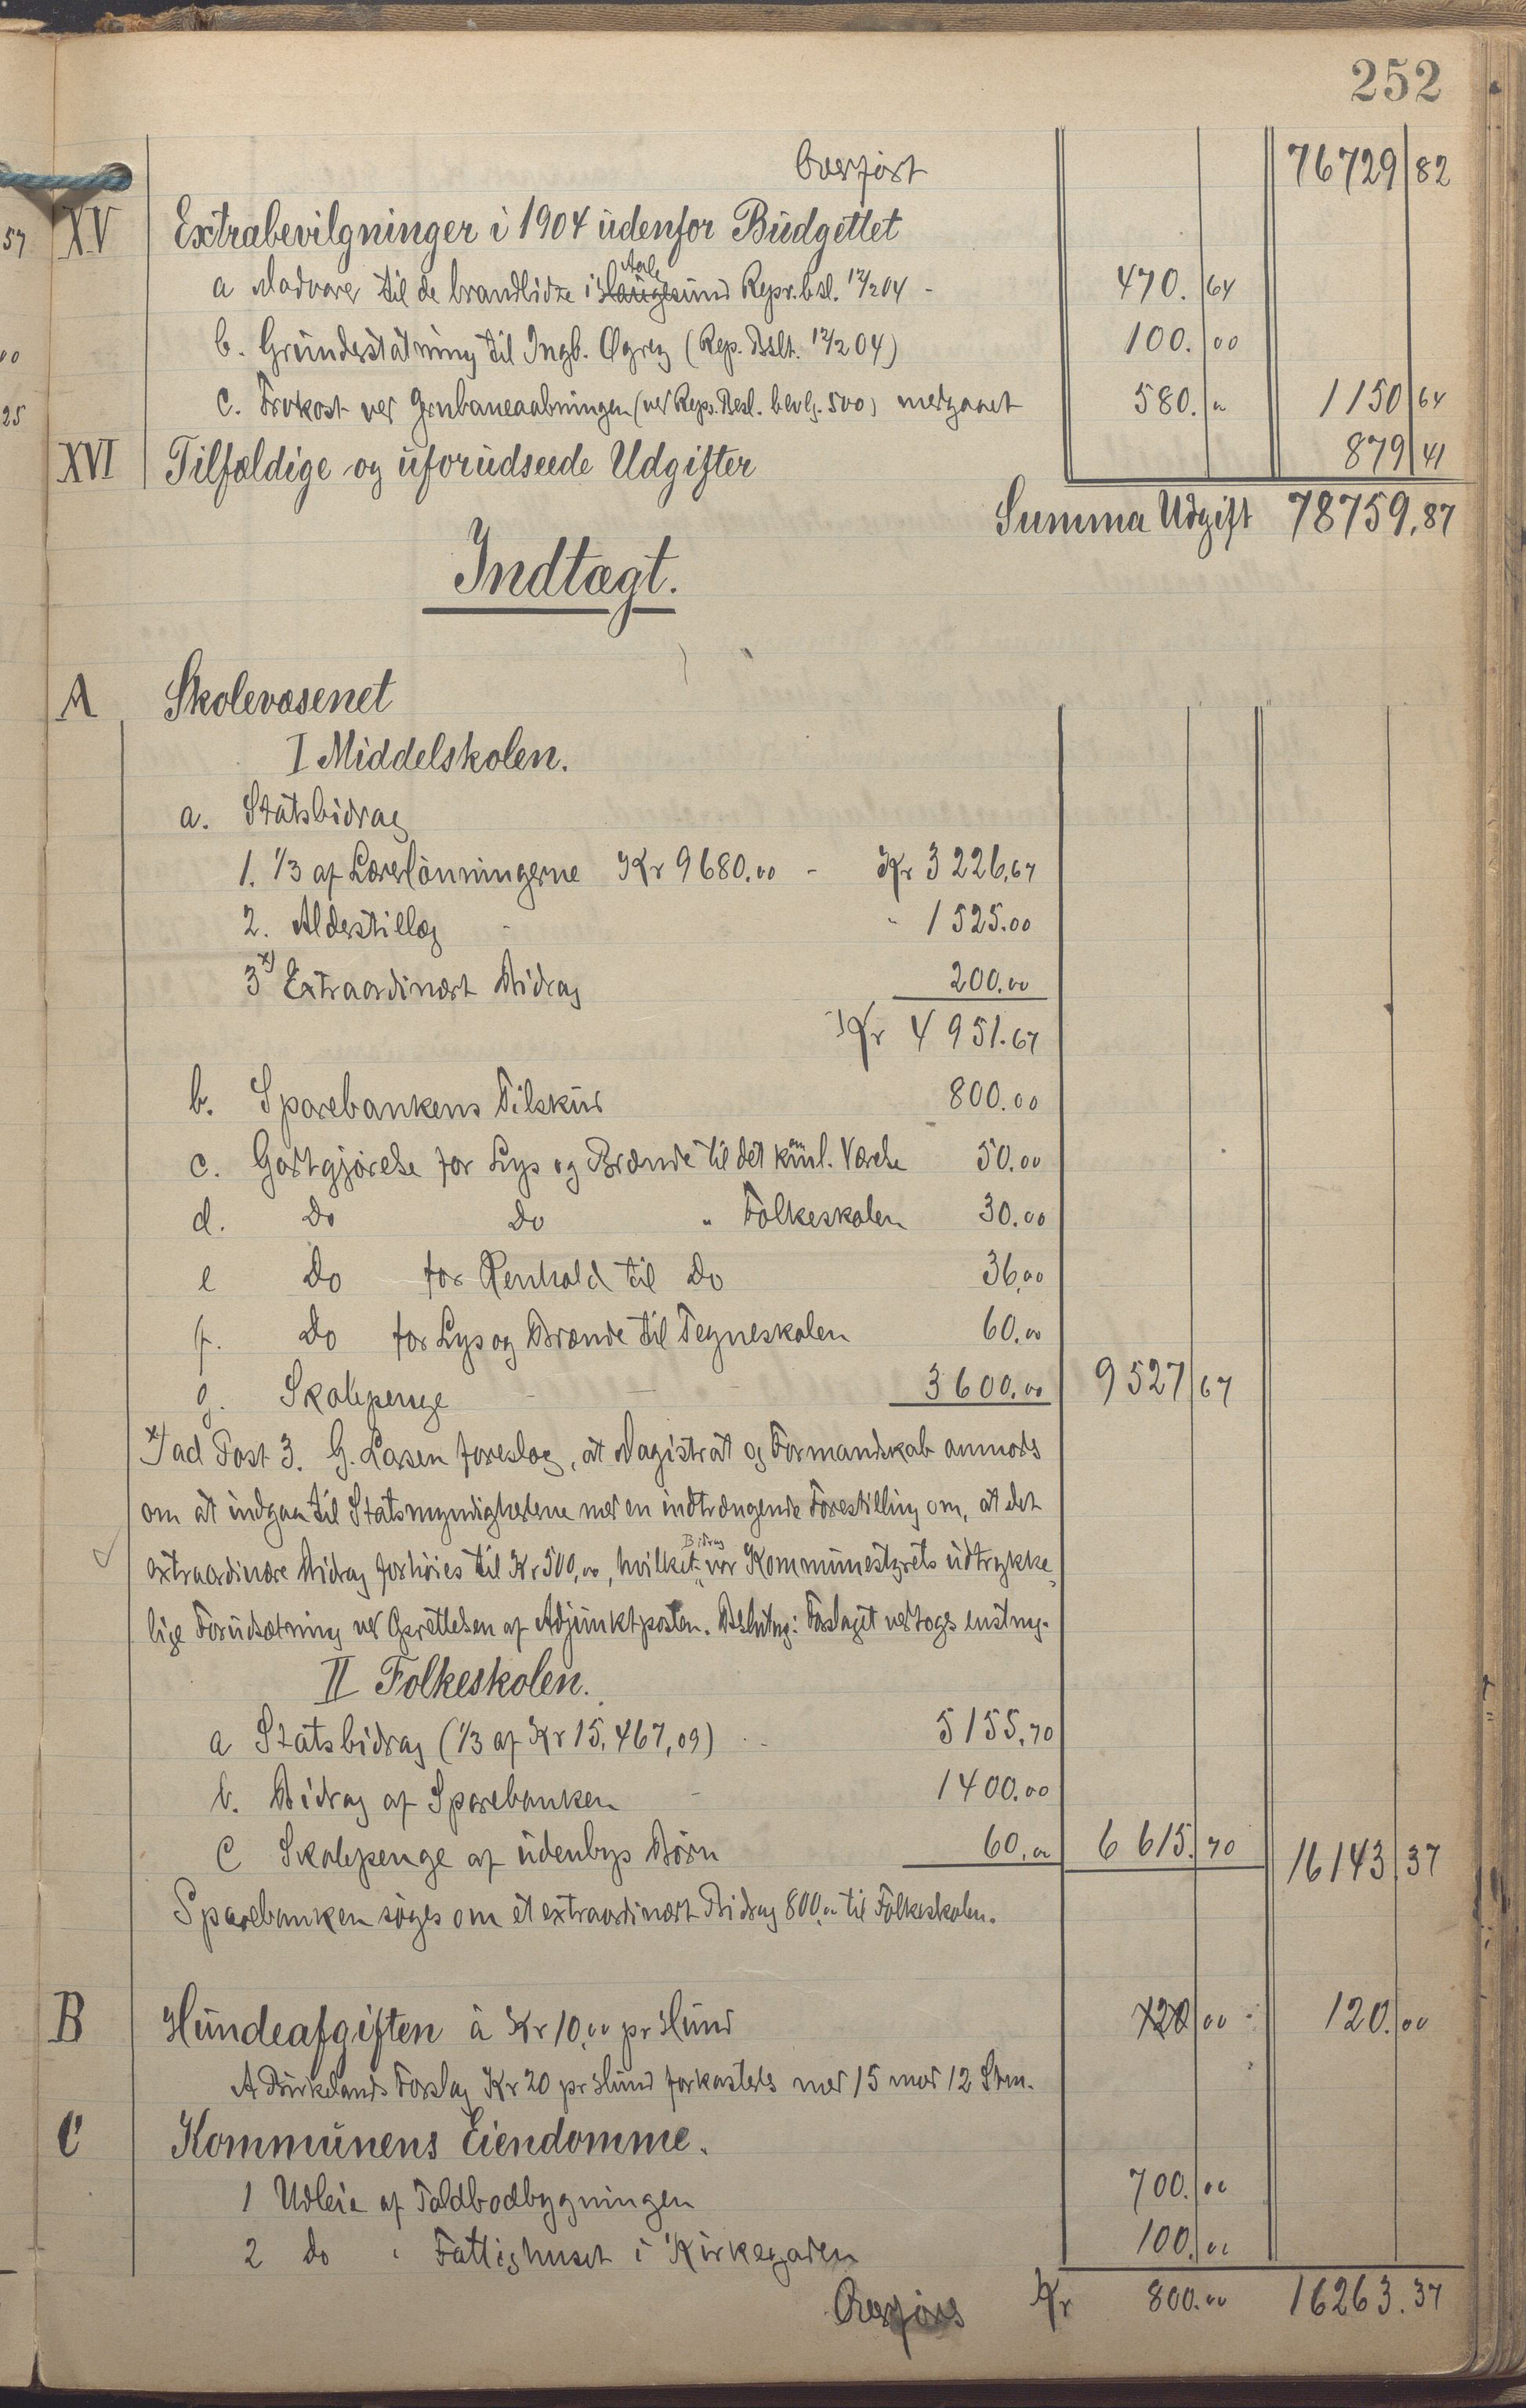 252
Overført 76729 82
57 XV Extrabevilgninger i 1904 udenfor Budgettet
a Madvarer til de brandlidte i Haugesund Aale Repr.bsl. 12/2 04 - 470. 64
b. Grundestøtning til Ingb. Øgrey (Rep. Bslt. 12/2 04) 100. 00
c. Frokost ved Grnbaneaabningen (ved Repr. Besl. bevlg. 500) medgaaet 580. " 1150 64
25
XVI Tilfældige og uforudseede Udgifter 879 41
Summa Udgift 78759.87
Indtægt.
A Skolevæsenet
I Middelskolen.
a. Statsbidrag
1. 1/3 af Lærerlønningerne Kr 9680.00 - Kr 3226,67
2. Alderstillæg - " 1525.00
3 x) Extraordinært Bidrag 200.00
Kr 4951.67
b. Sparebankens Tilskud 800.00
c. Godtgjørelse for Lys og Brænde til det kml. Værelse 50.00
d. Do Do " Folkeskolen 30.00
e Do for Renhold til Do 36,00
f. Do for Lys og Brænde til Tegneskolen 60.00
g. Skolepenge 3600.00 9527 67
x) ad Post 3. G. Larsen foreslog, at Magistrat og Formandskab anmodes
om at indgaa til Statsmyndighederne med en indtrængende Forestilling om, at det
extraordinære Bidrag forhøies til Kr 500,00, hvilket Bidrag var Kommunestyrets udtrykke-
lige Forudsætning ved Oprettelsen af Adjunktposten. Beslutng: Forslaget vedtoges enstmg.
II Folkeskolen.
a Statsbidrag (1/3 af Kr 15,467,09) 5155,70
b. Bidrag af Sparebanken - 1400.00
c Skolepenge af udenbys Børn 60,00 6615. 70 16143. 37
Sparebanken søges om et extraordinært Bidrag 800,00 til Folkeskolen.
B Hundeafgiften à Kr 10,00 pr Hund 120 00 120. 00
A Birkelands Forslag Kr 20 pr Hund forkastedes med 15 mod 12 Stm.
C Kommunens Eiendomme.
1 Udleie af Toldbodbygningen 700. 00
2 do " Fattighuset i Kirkegaden 100. 00
Overføres Kr 800.00 16263.37